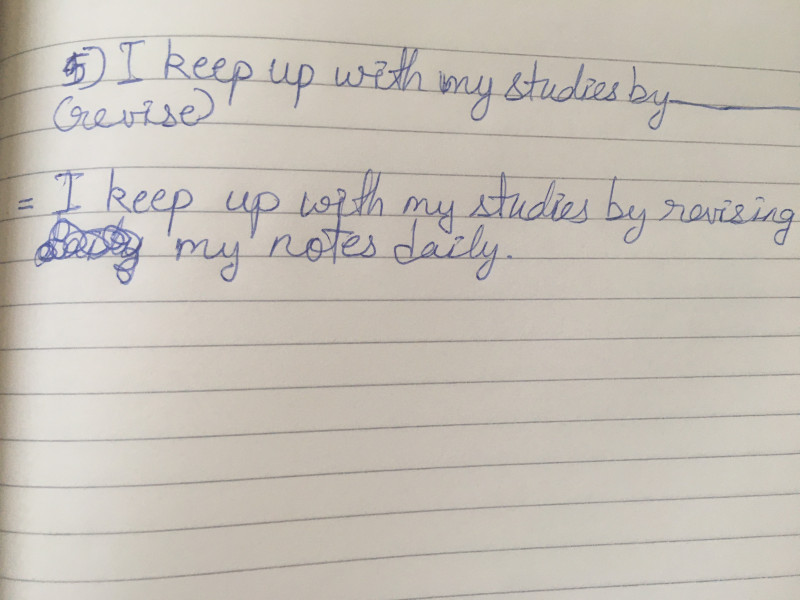 5) I keep up with my studies by
(revise)
= I keep up with my studies by revising
my notes daily.